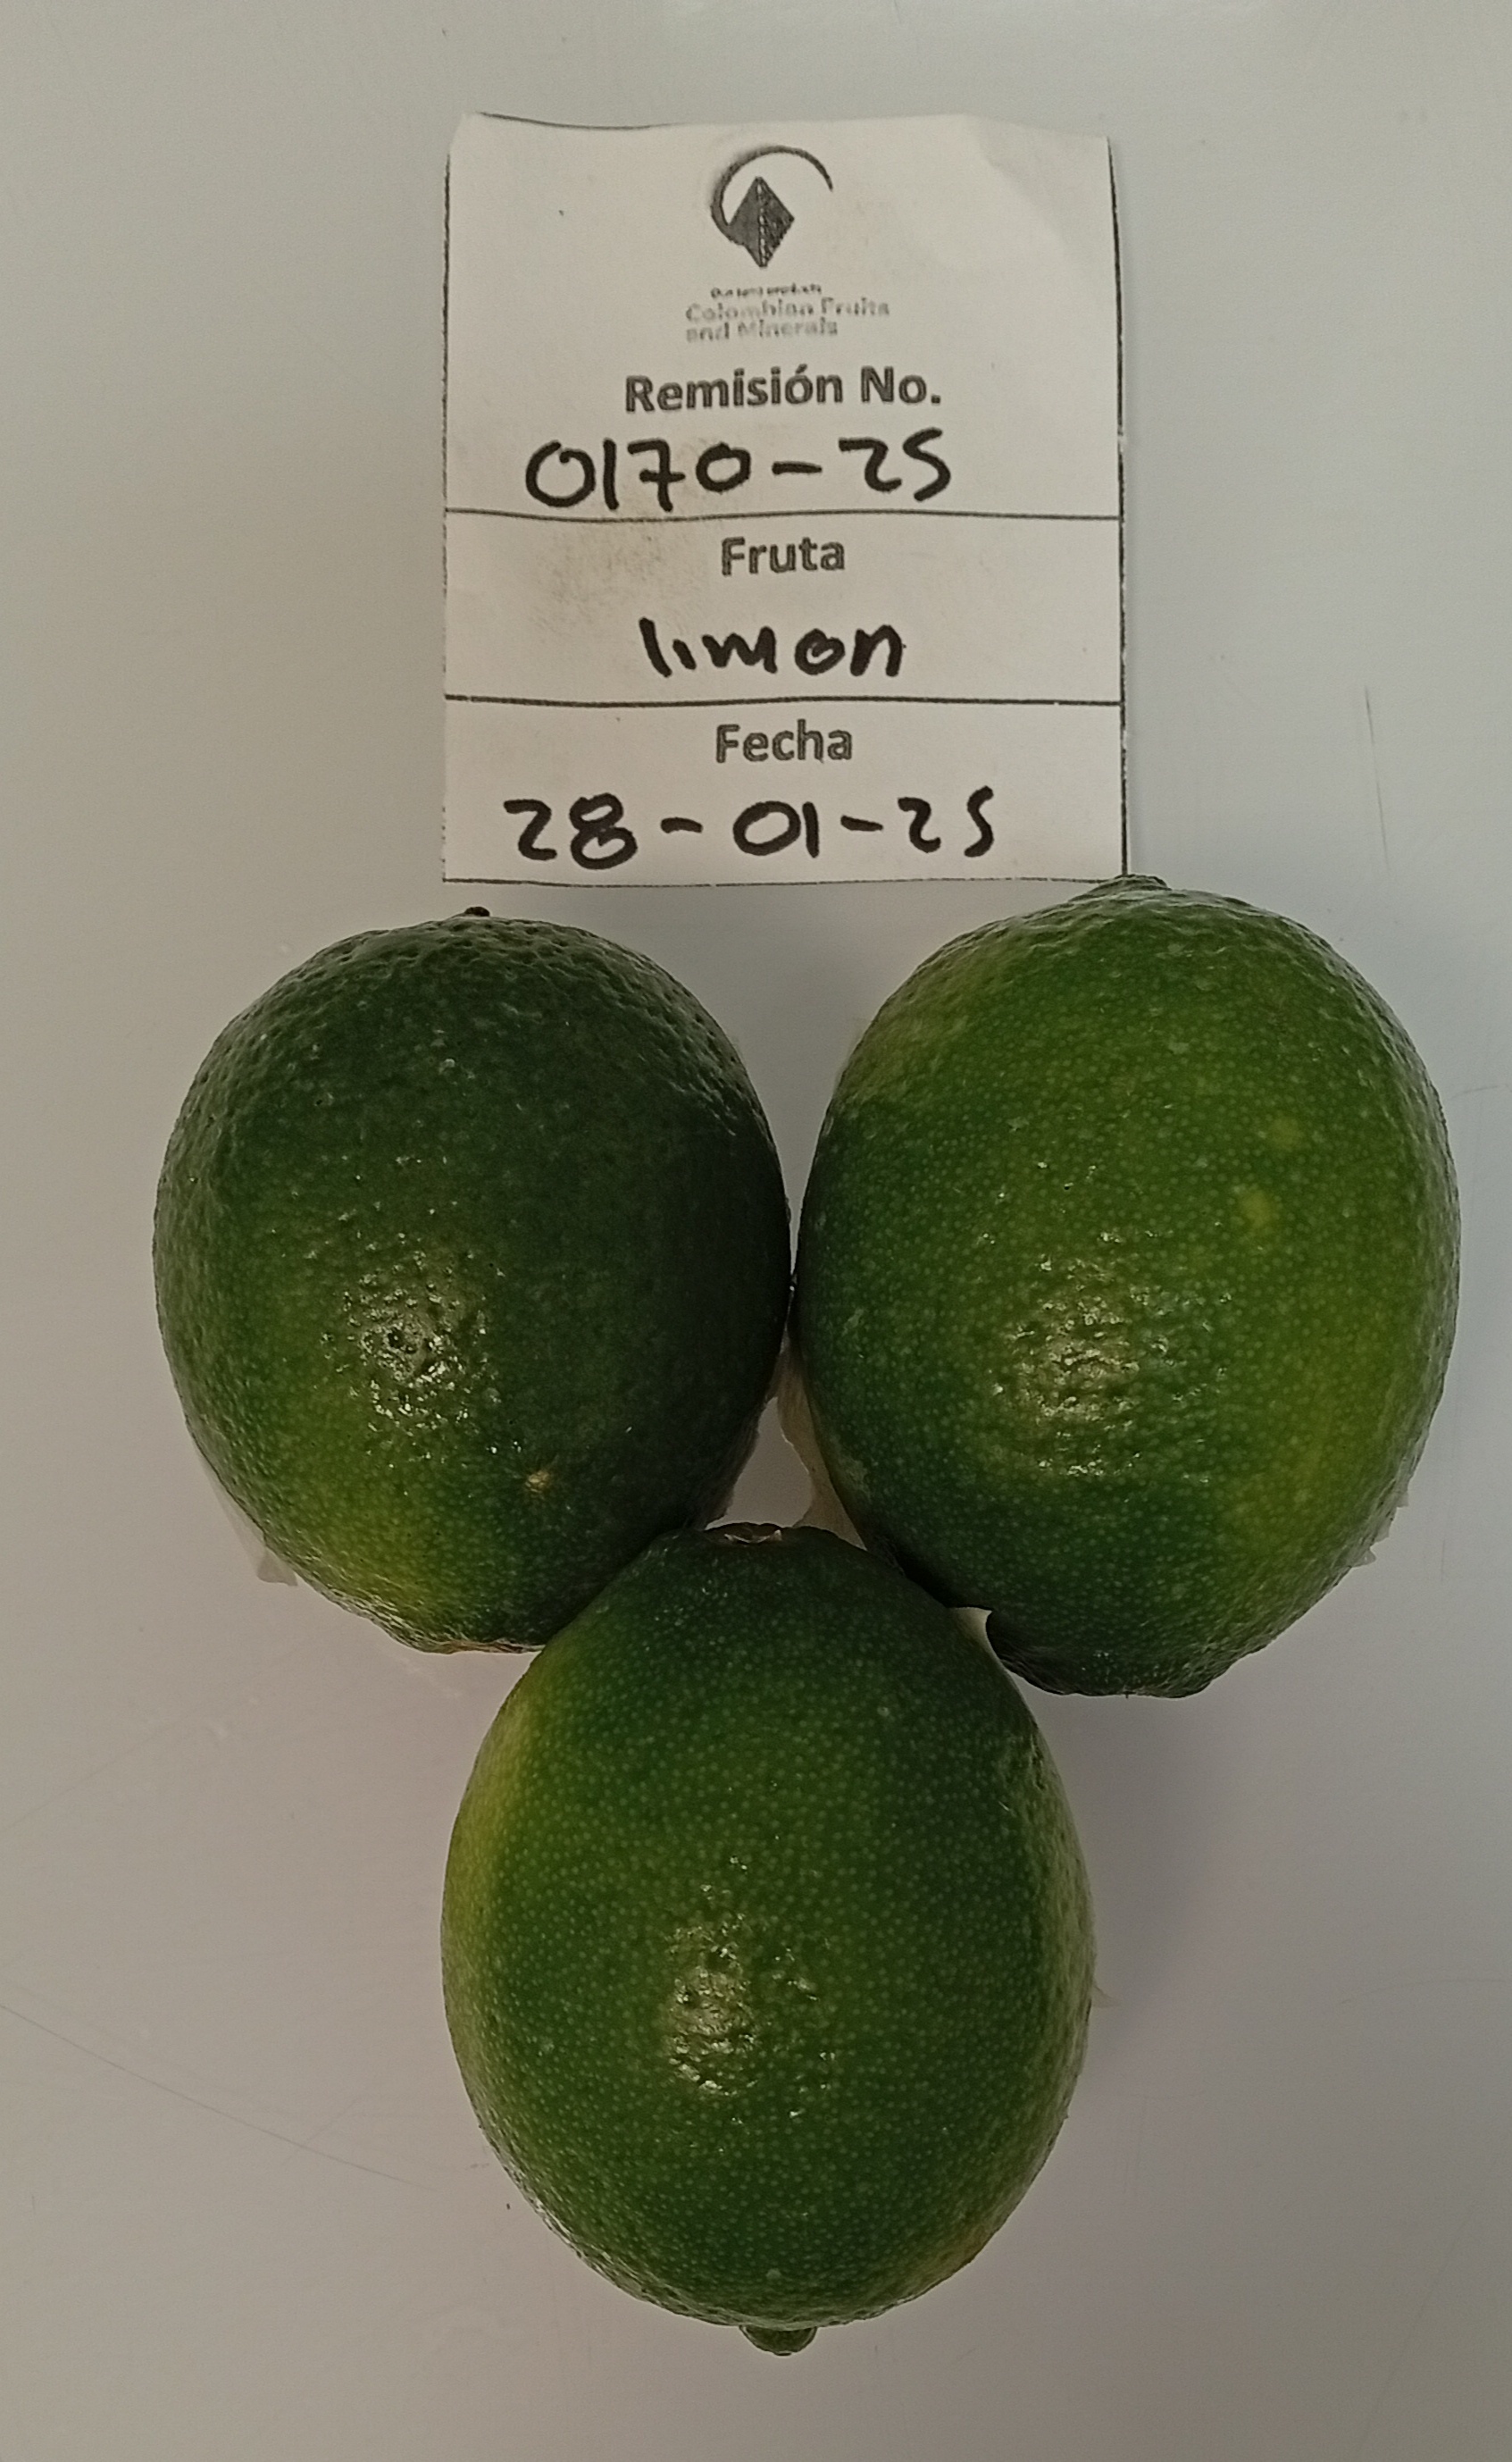 Colombian Fruits
and Minerals
Remisión No.
0170-25
Fruta
limon
Fecha
28-01-25